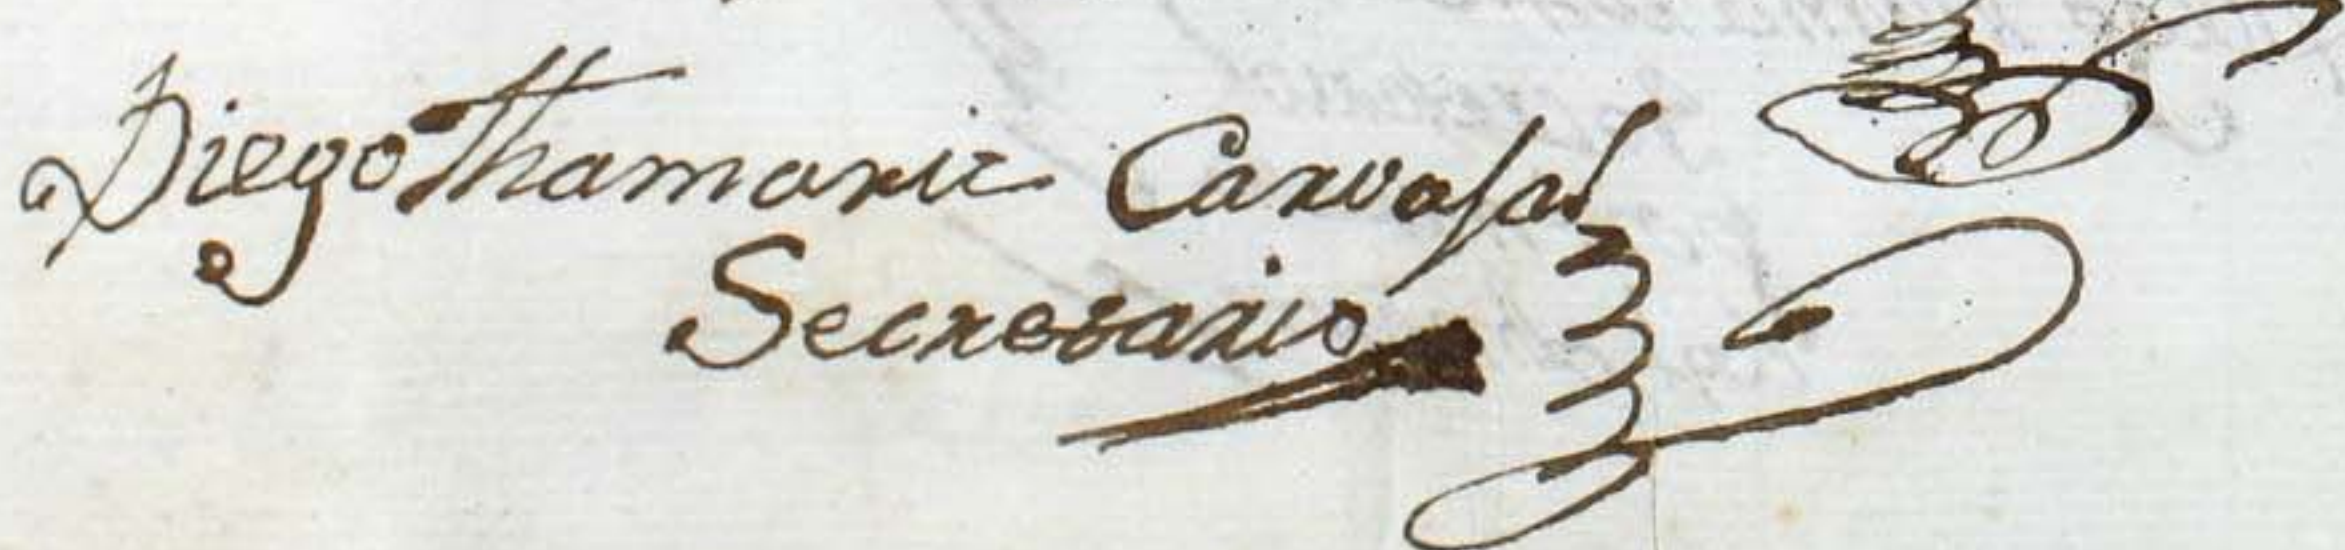 Diego Thamaric Carvajal
Secretario